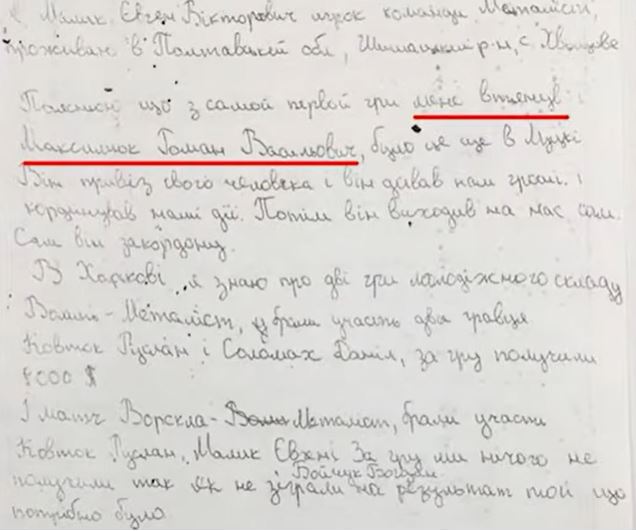 Я, Малик Євген Вікторович игрок команди Металіст,
проживаю в Полтавській обл, Шишацький р-н, с.
Поясняю що з самой первой гри мене втянув
Максимюк Роман Васильович, було це ще в Луцкі
Він привіз свого человека і він давав нам гроші. і
кординував наші дії. Потім він виходив на нас сам.
Сам він закордону.
В Харкові я знаю про дві гри молодіжного складу
Волинь - Металіст, у брали участь два гравця
Ковток Руслан і Соломах Даніл, за гру получили
8000 $
І матч Ворскла - Металіст, брали участи
Ковток Руслан, Малик Євхені За гру ми нічого не
Бойчук Богдан
получили так як не зіграли на результат той що
потрібно було.